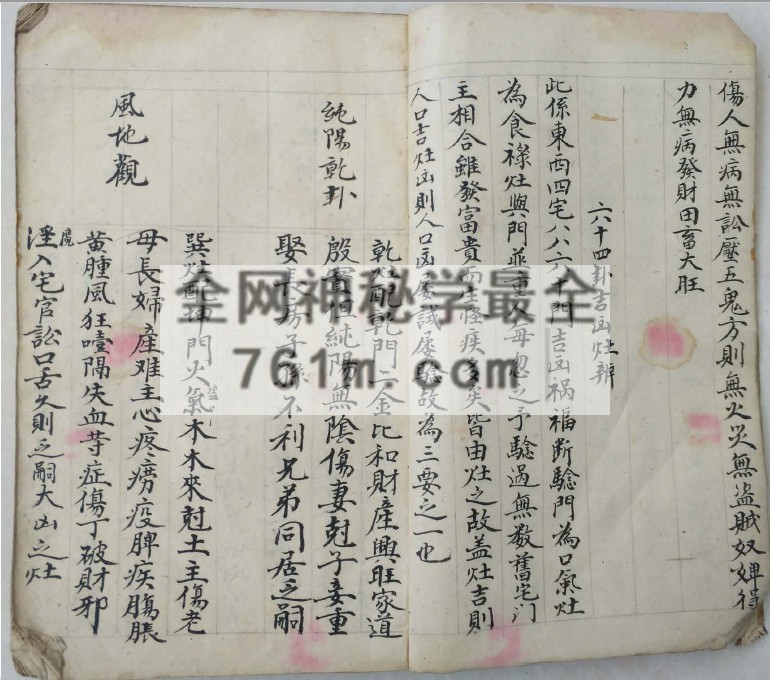 傷人無病無訟壓五鬼方則無火災無盜賊奴婢得
力無病發財田畜大旺
六十四卦吉凶灶辨
此係東西四宅八八六十門吉凶祸福断驗門為口氣灶
為食祿灶與門並重人每忽之予驗過無数舊宅门
主相合雖發富貴而生怪疾多矣皆由灶之故盖灶吉則
人口吉灶凶則人口凶屡試屡驗故為三要之一也
純陽乾卦
乾灶配乾門二金比和財產興旺家道
殷實但純陽無陰傷妻尅子妾重
娶長房子孫不利兄弟同居乏嗣
風地觀
巽灶配坤門火氣木木來尅土主傷老
母長婦產难主心疼痨疫脾疾膓脹
黄腫風狂噎隔失血䓁症傷丁破財邪
滛入宅官訟口舌久則乏嗣大凶之灶
全网神秘学最全
761m.com